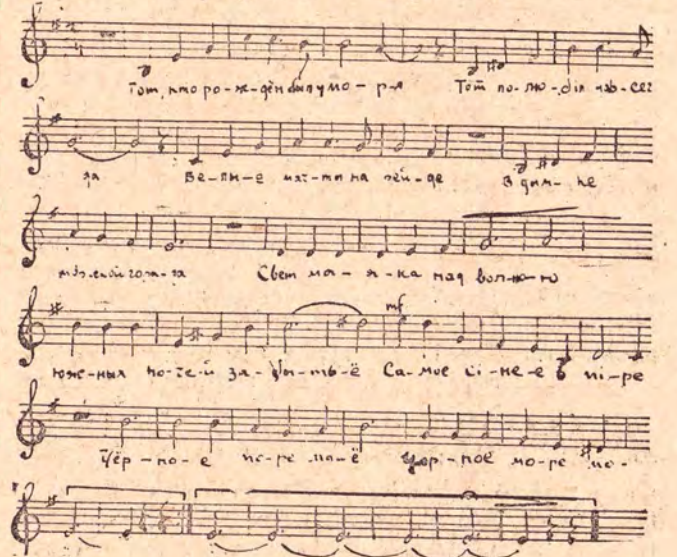 Тот, кто ро-ж-дён был у мо-ря Тот по-лю-біл наb-сег
да Бе-лы-е мач-ты на рей-де В дым-ке
морской города
Свет ма-я-ка над вол-но-ю
юж-ных но-че-й за-бы-ть-ё mf Са-мое сі-не-е в мі-ре
Чёр-но-е мо-ре мо-ё Чор-ное мо-ре мо-